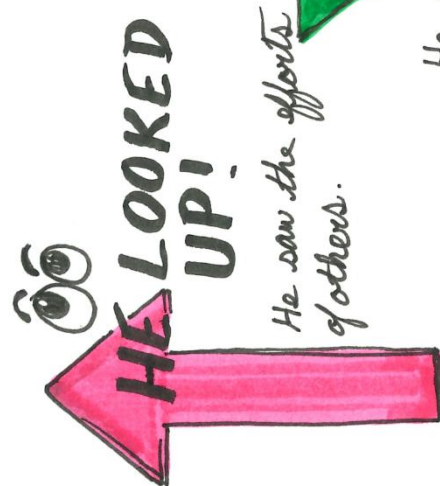 HE LOOKED
UP!
He saw the efforts
of others.
He